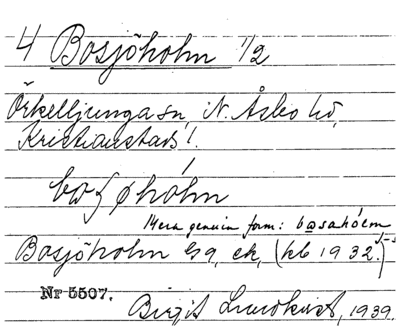 4 Bosjöholm 1/2
Örkelljunga sn, N. Åsbo hd,
Kristianstads l.
boʃøhólm
Mera genuin form: basahólm
Bosjöholm Gg, ek, (hb 1932.)
Nr 5507.
Birgit Lundkvist, 1939.